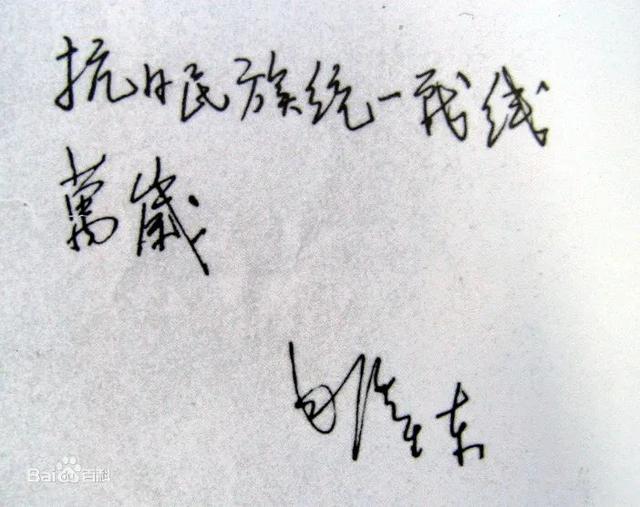 抗日民族统一战线
萬歲
东
Bai百科